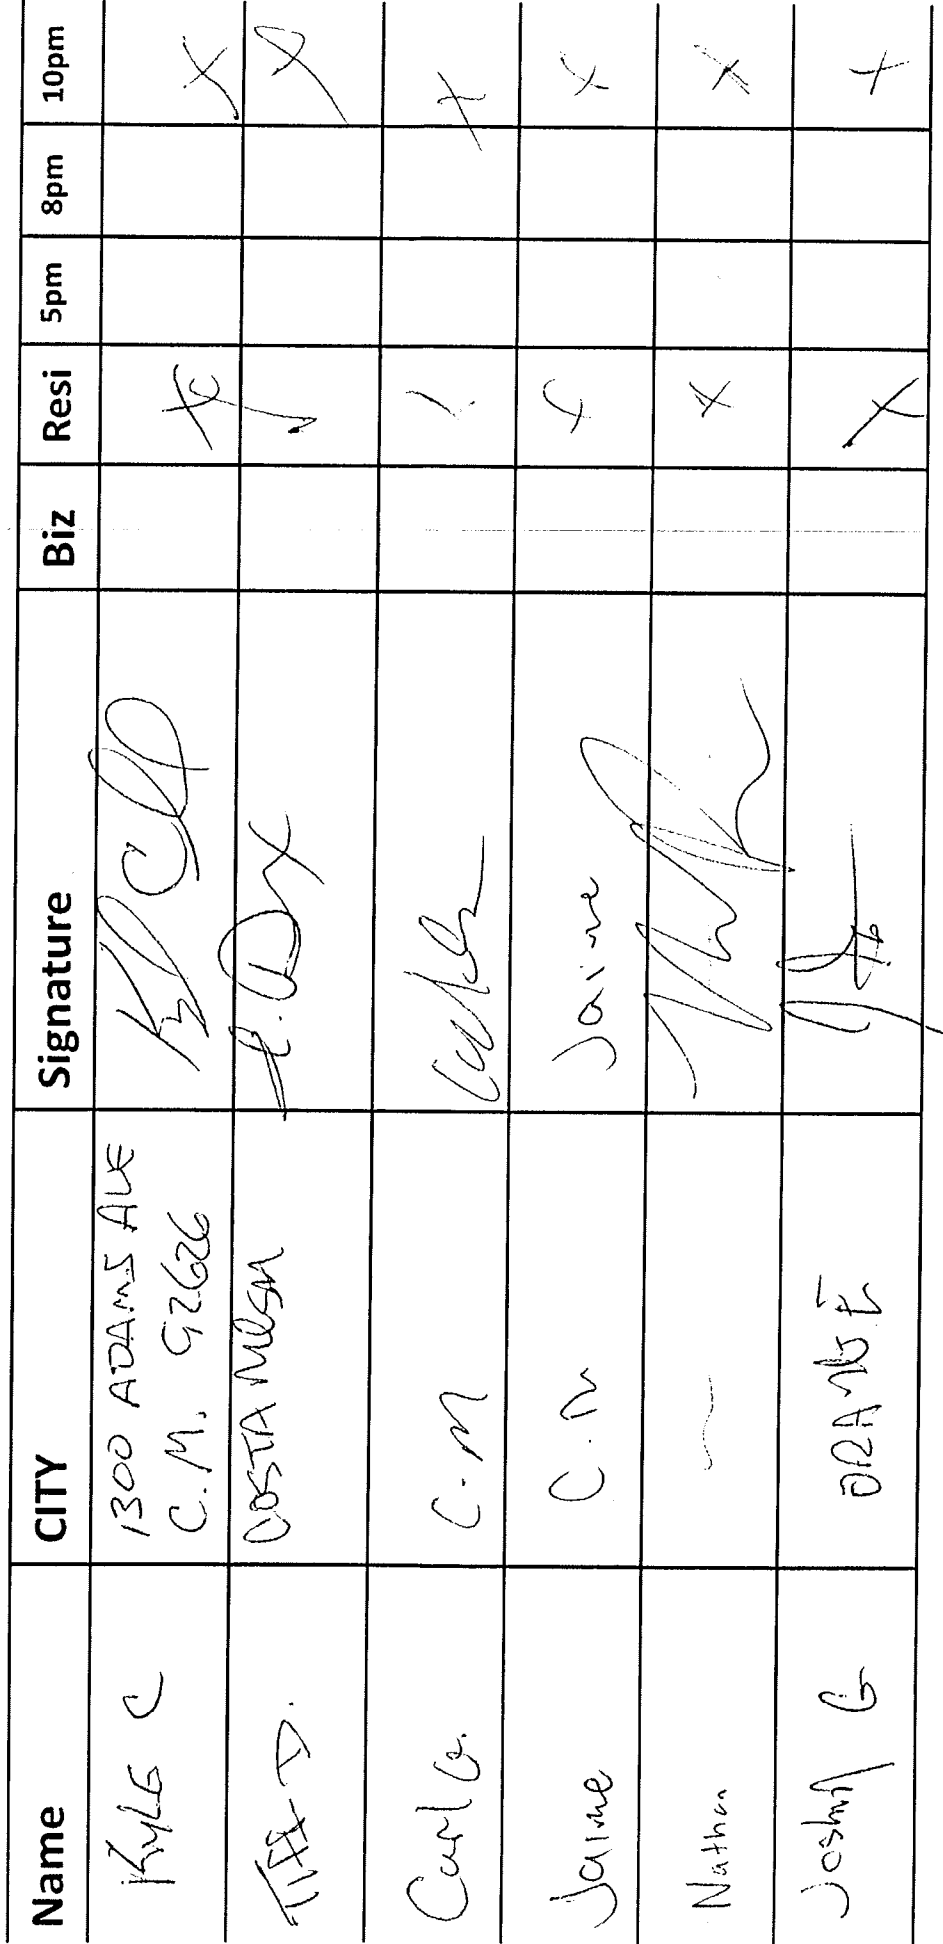 Name CITY Signature Biz Resi 5pm 8pm 10pm
KYLE C 1300 ADAMS AVE X X
C.M. 92626
TIFF D. COSTA MESA X
Carl G. C.M X
Jaime C.M Jaime X X
Nathan X X
Joshua G ORANGE X X